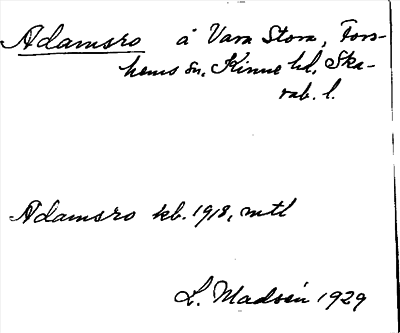 Adamsro å Vara Stora, Fors-
hems sn, Kinne hd, Ska-
rab. l.
Adamsro kb. 1918, mtl
L. Madsén 1929